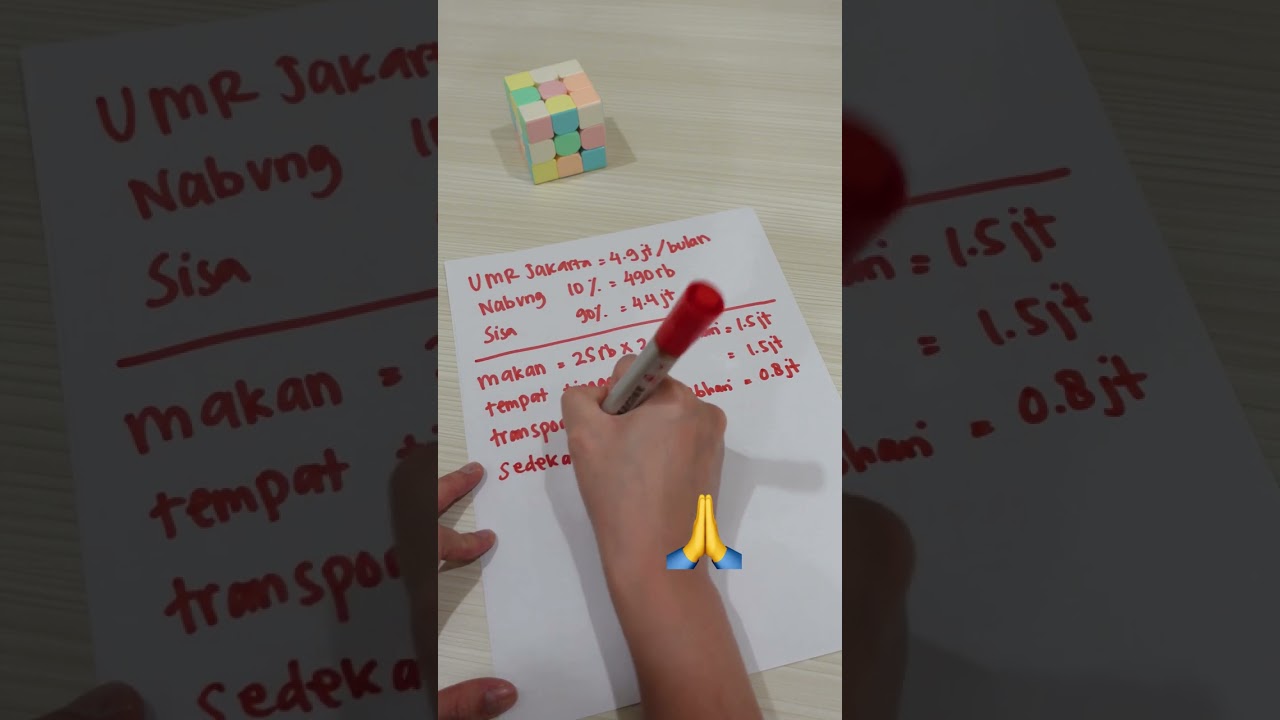 UMR Jakarta = 4.9jt/bulan
Nabung 10% = 490rb
Sisa 90% = 4.4jt
makan = 25rb x 2 = 1.5jt
tempat = 1.5jt
transpor bhari = 0.8jt
sedeka